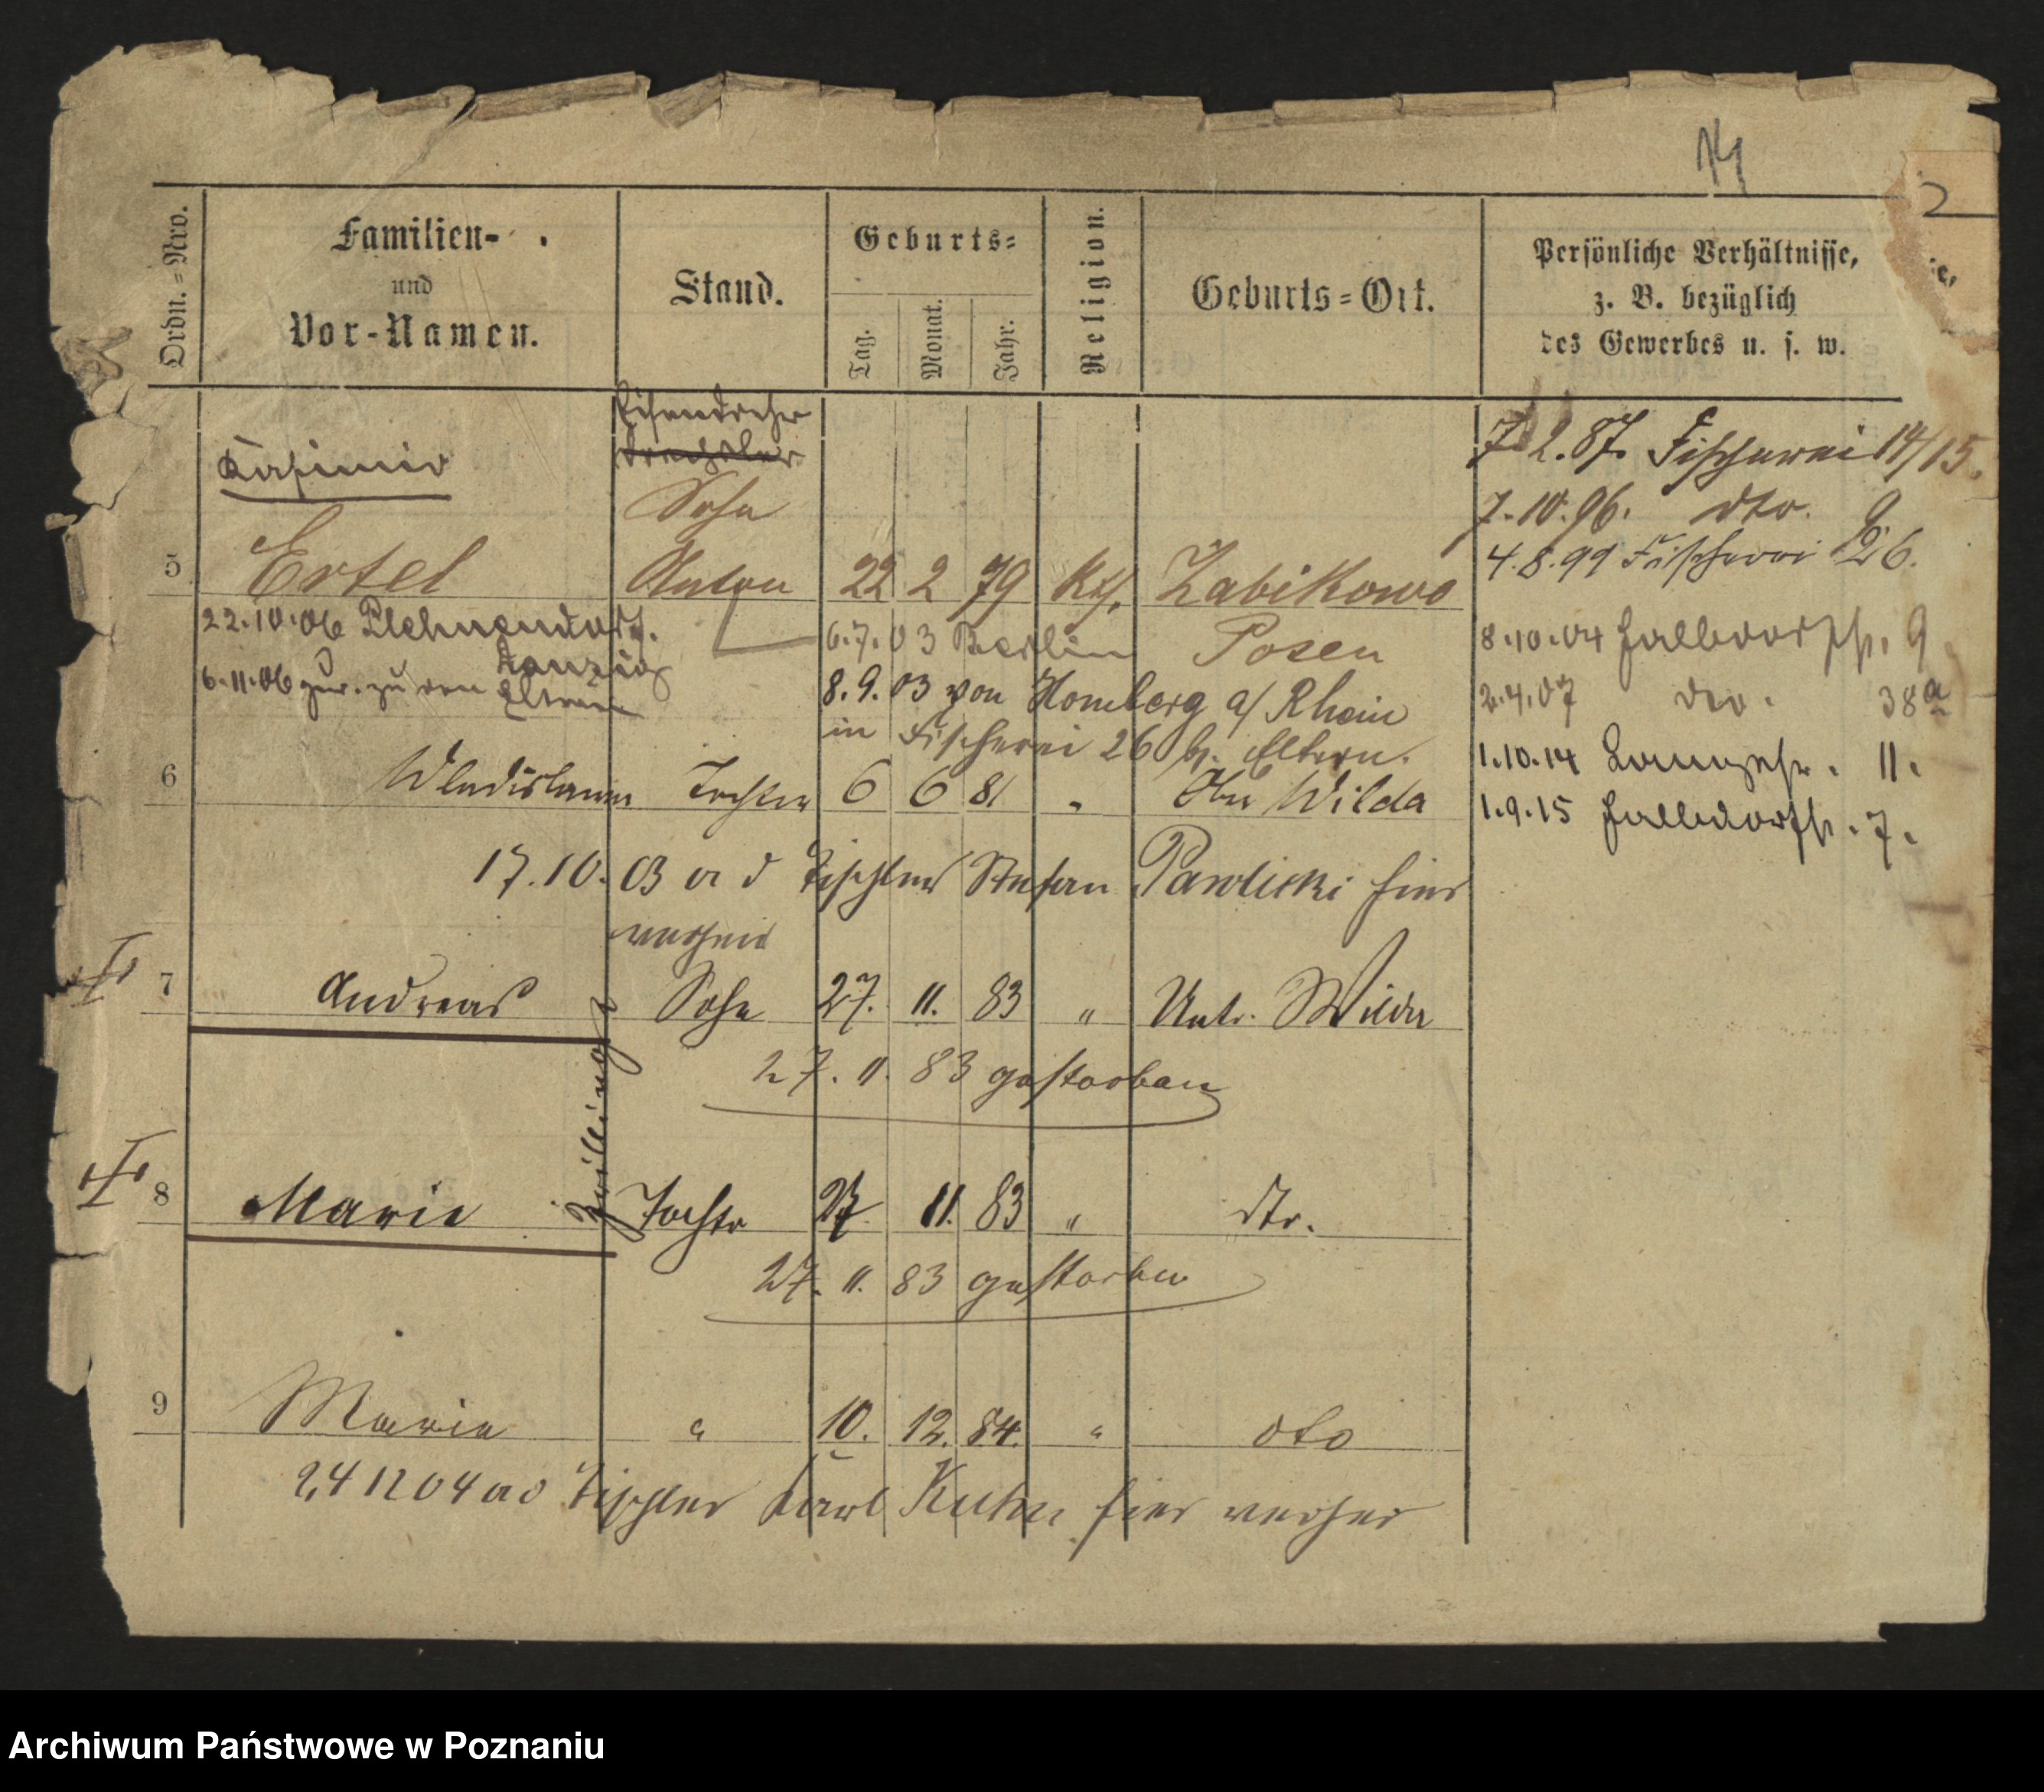 14
2
Ordn.=Nro.
Familien-
und
Vor-Namen.
Stand.
Geburts=
Tag.
Monat.
Jahr.
Religion.
Geburts=Ort.
Persönliche Verhältnisse,
z. B. bezüglich
des Gewerbes u. s. w.
e,
Eisendreher
Drechsler
Kasimir
Sohn
5 Ertel Anton 22 2 79 Kth. Zabikowo
7. 2. 87. Fischerei 14/15.
7. 10. 96. dto. 9
4. 8. 99 Fischerei 26.
22.10.06 Plehnendorf.
Danzig
6.7.03 Berlin Posen
8.10.04 Halbdorfstr. 9
6.11.06 zur. zu den Eltern
8.9.03 von Homberg a/ Rhein
in Fischerei 26 b. Eltern.
2.4.07 dto. 38a
6 Wladislawa Tochter 6 6 81 " Ober Wilda
1.10.14 Langestr. 11.
1.9.15 Halbdorfstr. 7.
17.10.03 a d Tischler Stefan Pawlicki hier
verheir
7 Andreas Sohn 27. 11. 83 " Unt. Wilda
27. 11. 83 gestorben
Zwillinge
8 Marie Tochtr 27 11. 83 " dto.
27. 11. 83 gestorben
9 Marie " 10. 12. 84. " dto
24 12 04 a d Tischler Karl Kuhn hier verheir
Archiwum Państwowe w Poznaniu